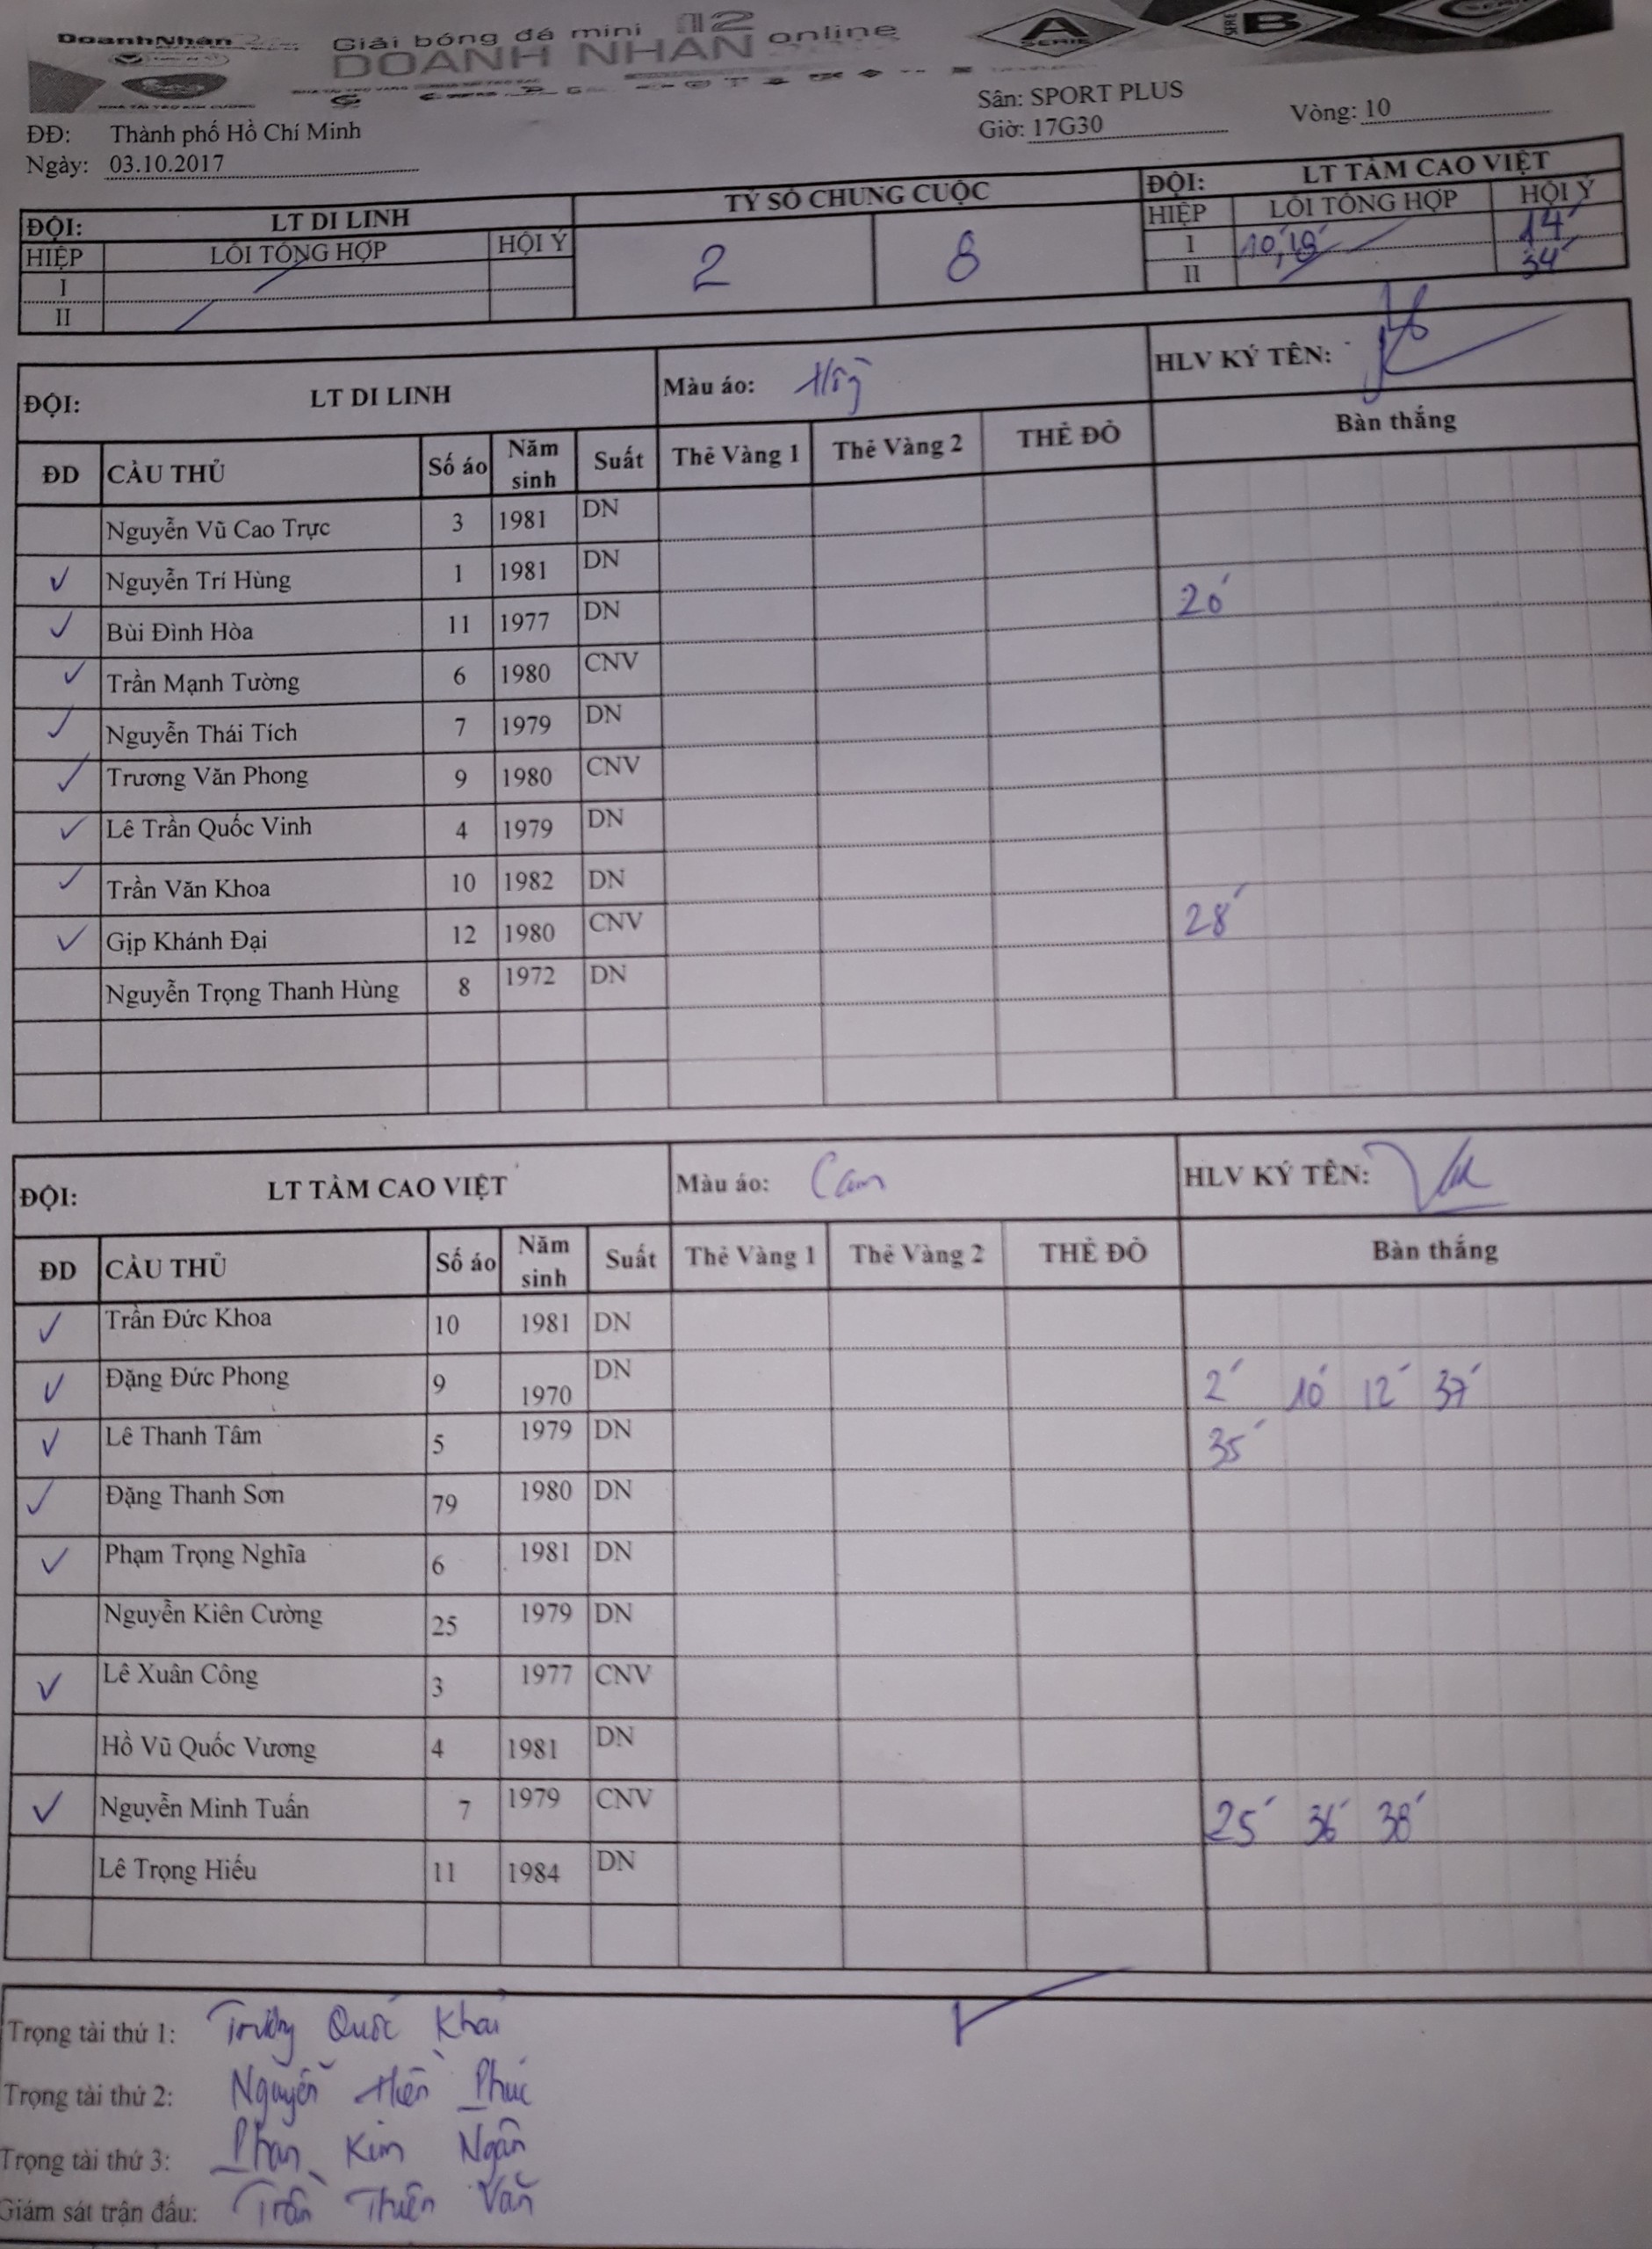 DoanhNhân
Giải bóng đá mini 12
DOANH NHÂN online
A
SERIE
B
SERIE
NHÀ TÀI TRỢ KIM CƯƠNG
Sân: SPORT PLUS
ĐĐ: Thành phố Hồ Chí Minh Giờ: 17G30 Vòng: 10
Ngày: 03.10.2017
ĐỘI: LT DI LINH TỶ SỐ CHUNG CUỘC ĐỘI: LT TẦM CAO VIỆT
HIỆP LỖI TỔNG HỢP HỘI Ý 2 8 HIỆP LỖI TỔNG HỢP HỘI Ý
I I 10', 18' 14'
II II 34'
ĐỘI: LT DI LINH Màu áo: HLV KÝ TÊN:
ĐD CẦU THỦ Số áo Năm sinh Suất Thẻ Vàng 1 Thẻ Vàng 2 THẺ ĐỎ Bàn thắng
Nguyễn Vũ Cao Trực 3 1981 DN
✓ Nguyễn Trí Hùng 1 1981 DN
✓ Bùi Đình Hòa 11 1977 DN 20'
✓ Trần Mạnh Tường 6 1980 CNV
✓ Nguyễn Thái Tích 7 1979 DN
✓ Trương Văn Phong 9 1980 CNV
✓ Lê Trần Quốc Vinh 4 1979 DN
✓ Trần Văn Khoa 10 1982 DN
✓ Gịp Khánh Đại 12 1980 CNV 28'
Nguyễn Trọng Thanh Hùng 8 1972 DN
ĐỘI: LT TẦM CAO VIỆT Màu áo: Cam HLV KÝ TÊN:
ĐD CẦU THỦ Số áo Năm sinh Suất Thẻ Vàng 1 Thẻ Vàng 2 THẺ ĐỎ Bàn thắng
✓ Trần Đức Khoa 10 1981 DN
✓ Đặng Đức Phong 9 1970 DN 2' 10' 12' 37'
✓ Lê Thanh Tâm 5 1979 DN 35'
✓ Đặng Thanh Sơn 79 1980 DN
✓ Phạm Trọng Nghĩa 6 1981 DN
Nguyễn Kiên Cường 25 1979 DN
✓ Lê Xuân Công 3 1977 CNV
Hồ Vũ Quốc Vương 4 1981 DN
✓ Nguyễn Minh Tuấn 7 1979 CNV 25' 36' 38'
Lê Trọng Hiếu 11 1984 DN
Trọng tài thứ 1: Trương Quốc Khải
Trọng tài thứ 2: Nguyễn Hiền Phúc
Trọng tài thứ 3: Phan Kim Ngân
Giám sát trận đấu: Trần Thiên Văn